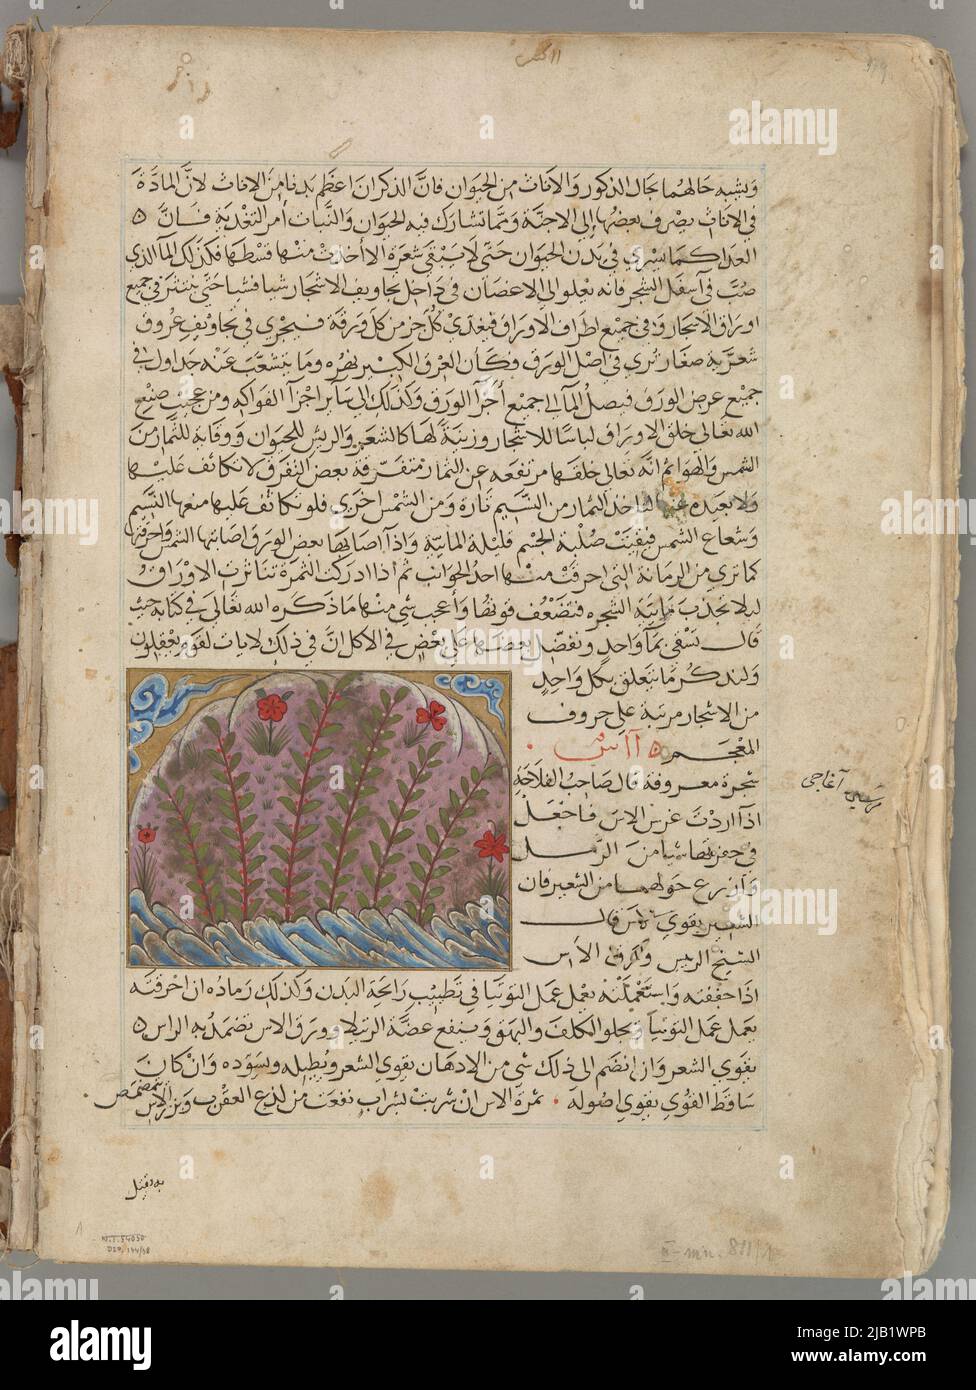 ويشبه حالهما بحال الذكور والاناث من الحيوان فانّ الذكران اعظم بدنا من الاناث لانّ المادّة
في الاناث يصرف بعضها إلى الاجنّة وممّا تشارك فيه الحيوان والنّبات أمر التغذية فانّ
الغذا كما يسري في بدن الحيوان حتى لا يبقى شعرة الا أخذت منها قسطها فكذلك المآ الذي
صبّ في أسفل الشجر فانه يعلو الى الاغصان في داخل تجاويف الاشجار شيا فشيا حتى ينتشر في جميع
اوراق الاشجار وفي جميع اطراف الاوراق فيغذي كلّ جز من كل ورقة فيجري في تجاويف عروق
شعرية صغار تُرى في اصل الورق وكأن العرق الكبير نهره وما ينشعّب عنه جداول في
جميع عرض الورق فيصل المآ إلى جميع أجزآ الورق وكذلك إلى سآير اجزآ الفواكه ومن عجيب صنع
الله تعالى خلق الاوراق لباسا للاشجار وزينة لها كالشعر والريش للحيوان ووقاية للثمار من
الشمس والهوا ثم انّه تعالى خلقها مرتفعة عن الثمار متفرّقة بعض التفرق لا تكاثف عليها
ولا بعيدة عنها لتاخذ الثمار من النسيم تارة ومن الشمس اخرى فلو تكاثف عليها منعها النسيم
وشعاع الشمس فبقيت صلبة الجسم قليلة المائيّة واذا اصابها بعض الورق اصابتها الشمس واحرقتها
كما ترى من الرمانة التي احرقت منها احد الجوانب ثم اذا ادركت الثمرة تناثرت الاوراق
ليلا تجذب مايّية الشجره فتضعّف قوتها وأعجب شي منها ما ذكره الله تعالى في كتابه حيث
قال تسقى بمآ واحد ونفضّل بعضها على بعض في الاكل انّ في ذلك لايات لقوم يعقلون
ولنذكر ما يتعلق بكل واحد
من الاشجار مرتبة على حروف
المعجم آآس
شجرة معروفة قال صاحب الفلاحة
اذا اردت غرس الاس فاجعل
في حفرتها شيا من الرمل
وازرع حولهما من الشعير فان
الشعير يقوي الاس قال
الشيخ الريس ورق الاس
اذا جففته واستعملته يعمل عمل التوتيا في تطييب رايحة البدن وكذلك رماده ان احرقته
يعمل عمل التوتيا ويجلو الكلف والبهق وينفع عضّة الرتيلا وورق الاس تضمد به الراس
يقوي الشعر وان انضم الى ذلك شي من الادهان يقوي الشعر ويطيله ويسوّده وان كان
ساقط القوى يقوي اصوله ثمرة الاس ان شربت لشراب نفعت من لدغ العقرب وبزر الاس يتمضمض
مرسين آغاجى
به وقيل
N.I.54030
DEP. 144/38
III-min. 811/1
alamy
Image ID: 2JB1WPB
www.alamy.com